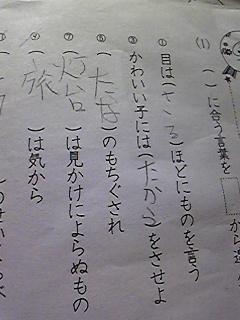 (1) ( )に合う言葉を から選
① 目は( )ほどにものを言う
③ かわいい子には(たから)をさせよ
⑤ (たな)のもちぐされ
⑦ (灯台)は見かけによらぬもの
⑨ (旅)は気から